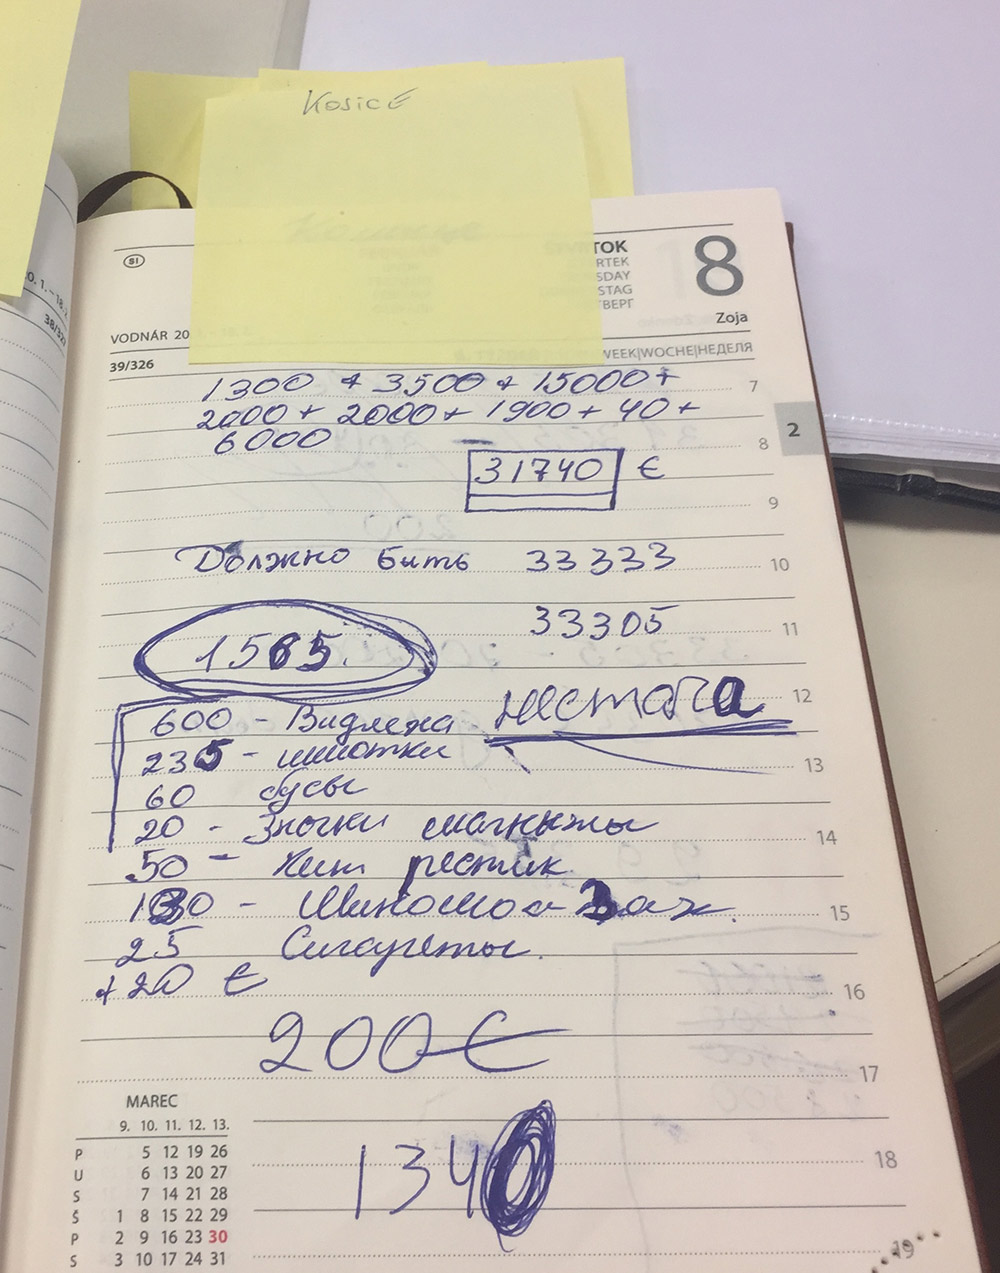 Kosice
SI
TOK
RTEK
SDAY
STAG
ТВЕРГ
8
VODNÁR 20
Zoja
39/326
WEEK|WOCHE|НЕДЕЛЯ
1300 + 3500 + 15000 +
2000 + 2000 + 1900 + 40 +
6000
31740 €
Должно быть 33333
33305
1565.
нестача
600 - Видлежа
235 - шмотки
60 бусы
20 - Значки магниты
50 -
130 -
25 Сигареты.
+ 20 €
200 €
1340
7
8
2
9
10
11
12
13
14
15
16
17
18
19
MAREC
9. 10. 11. 12. 13.
P 5 12 19 26
U 6 13 20 27
S 7 14 21 28
Š 1 8 15 22 29
P 2 9 16 23 30
S 3 10 17 24 31
38/327